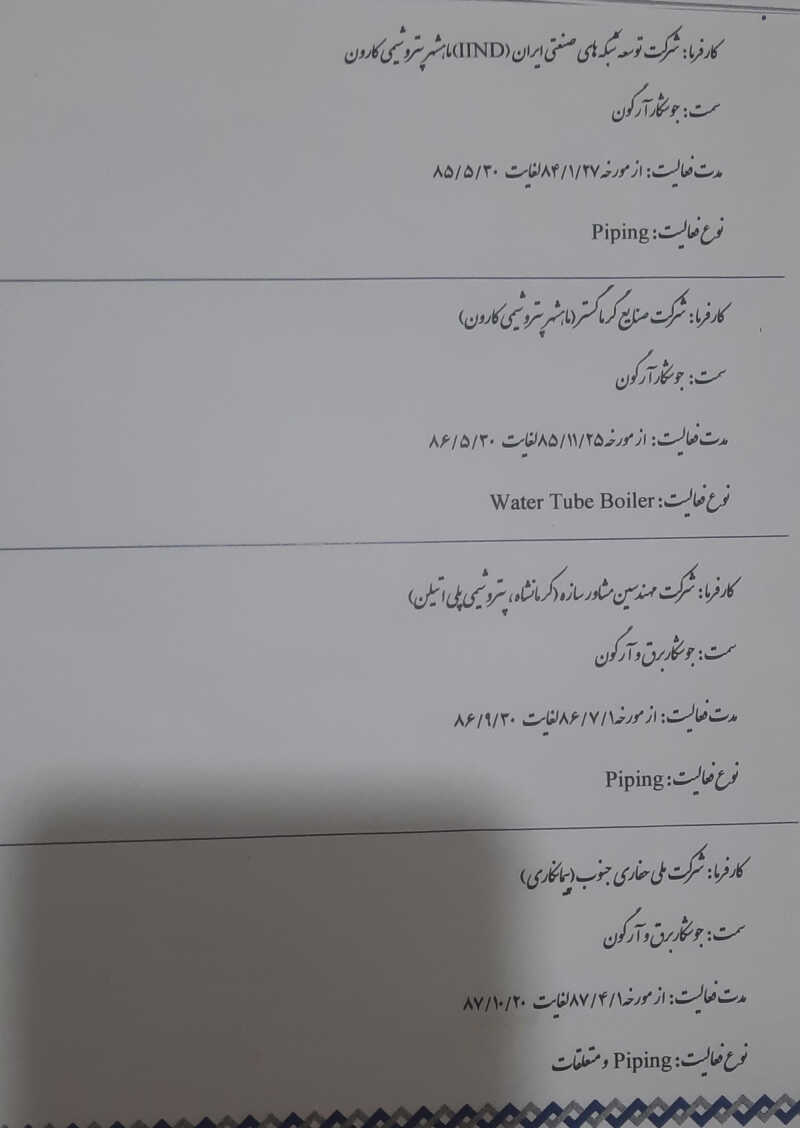 کارفرما: شرکت توسعه شبکه های صنعتی ایران (IIND) ماهشهر پتروشیمی کارون
سمت: جوشکار آرگون
مدت فعالیت: از مورخه ۸۴/۱/۲۷ لغایت ۸۵/۵/۳۰
نوع فعالیت: Piping
کارفرما: شرکت صنایع گرما گستر (ماهشهر پتروشیمی کارون)
سمت: جوشکار آرگون
مدت فعالیت: از مورخه ۸۵/۱۱/۲۵ لغایت ۸۶/۵/۳۰
نوع فعالیت: Water Tube Boiler
کارفرما: شرکت مهندسین مشاور سازه (کرمانشاه، پتروشیمی پلی اتیلن)
سمت: جوشکار برق و آرگون
مدت فعالیت: از مورخه ۸۶/۷/۱ لغایت ۸۶/۹/۳۰
نوع فعالیت: Piping
کارفرما: شرکت ملی حفاری جنوب (پیمانکاری)
سمت: جوشکار برق و آرگون
مدت فعالیت: از مورخه ۸۷/۴/۱ لغایت ۸۷/۱۰/۲۰
نوع فعالیت: Piping و متعلقات